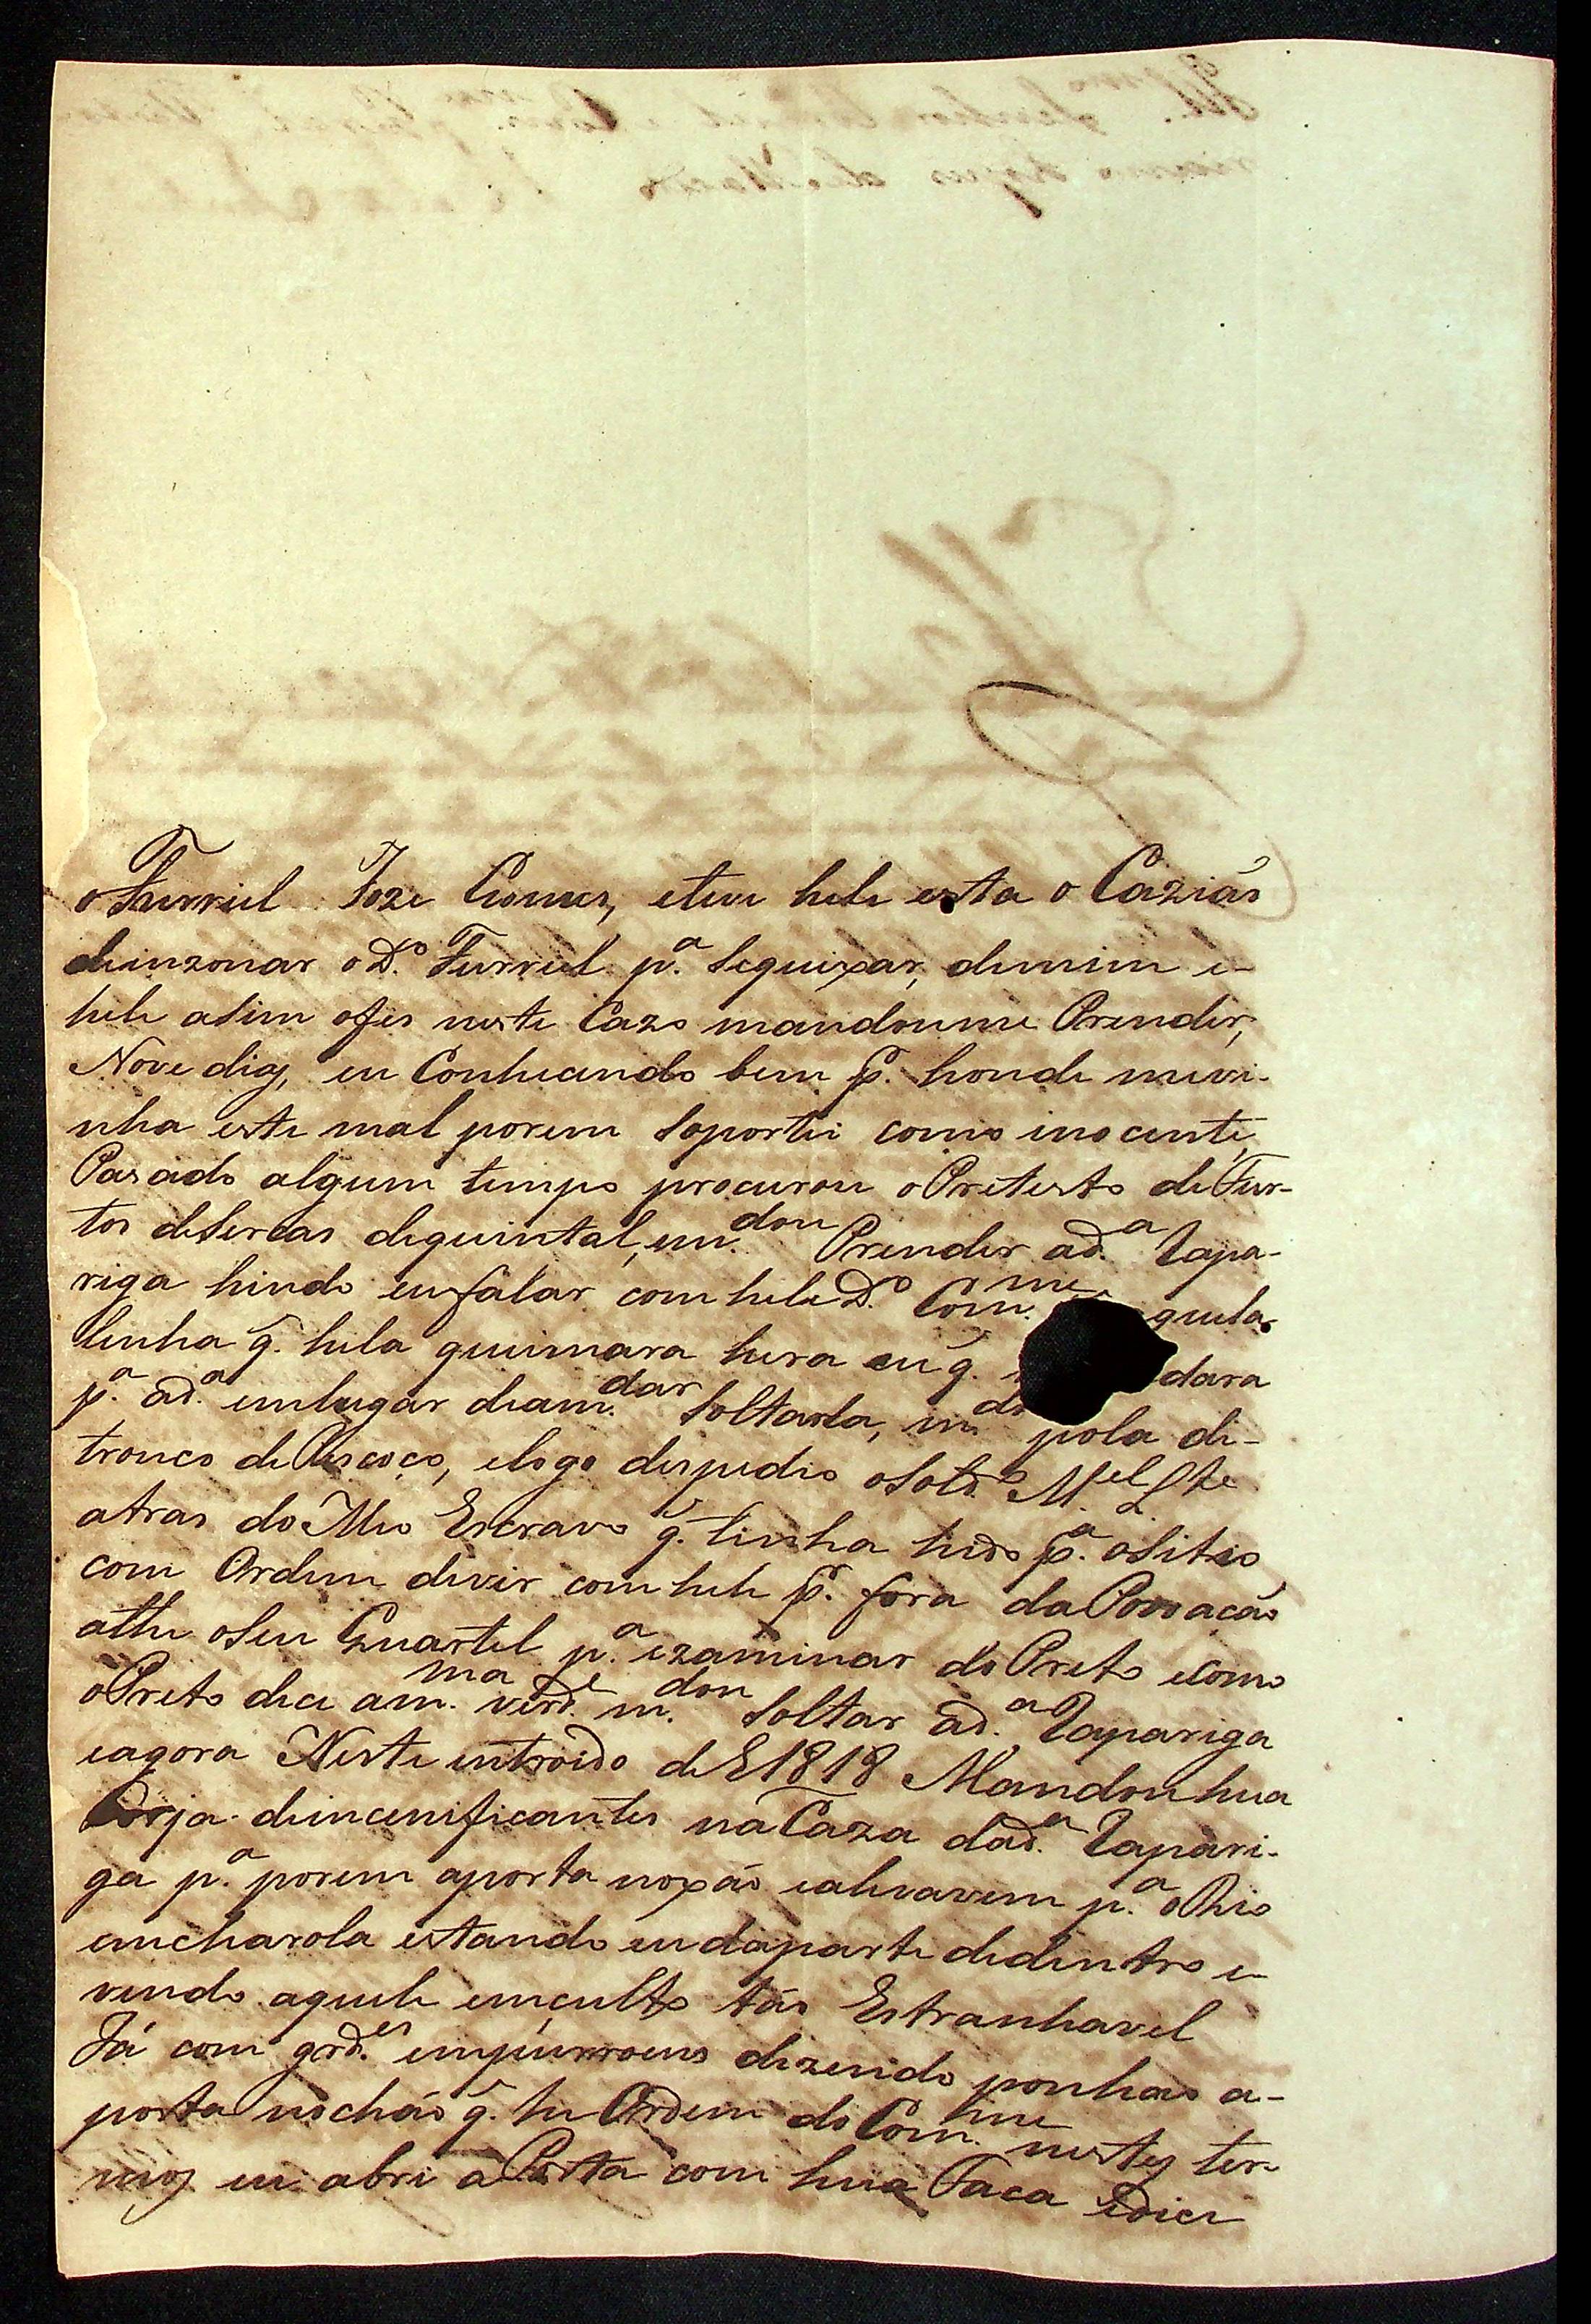 o Furriel Joze Gomes, eteve hele esta o Caziaõ
de inzonar o D.º Furriel p.ª sequixar, demim e
hele asim ofes neste Cazo mandoume Prender,
Nove dias, eu Conhecendo bem p.r honde mevi-
nha este mal porem soportei como inocente,
Pasado algum tempo procurou o Pretesto de Fur-
tos de sercas dequintal, em.dou Prender ad.ª Rapa-
riga hindo eu falar com hele D.º Com.me quela
tinha q. hela queimara hera eu q. dara
p.ª ad.ª emlugar deam.dar soltarla, m.do pola di-
tronco de Pescoço, elogo despedio o Sold.º M.el
atras do Meu Escravo q. tinha hido p.ª o Sitio
com Ordem devir com hele p.r fora da Povoacaõ
athe o seu Quartel p.ª ezaminar do Preto ecomo
o Preto dice am.ma verd.e m.dou soltar ad.ª Rapariga
eagora Neste introido de 1818 Mandou hua
Corja deincenificantes na Caza dad.ª Rapari-
ga p.ª porem aporta noxaõ ealevarem p.ª o Rio
emcharola estando eu daparte dedentro e
vendo aquele emçulto taõ Estranhavel
Já com grd.es empurroens dizendo ponhaõ a-
porta nochaõ q. he Ordem do Com.me nestes ter-
mos eu abri a Porta com hua Faca edice